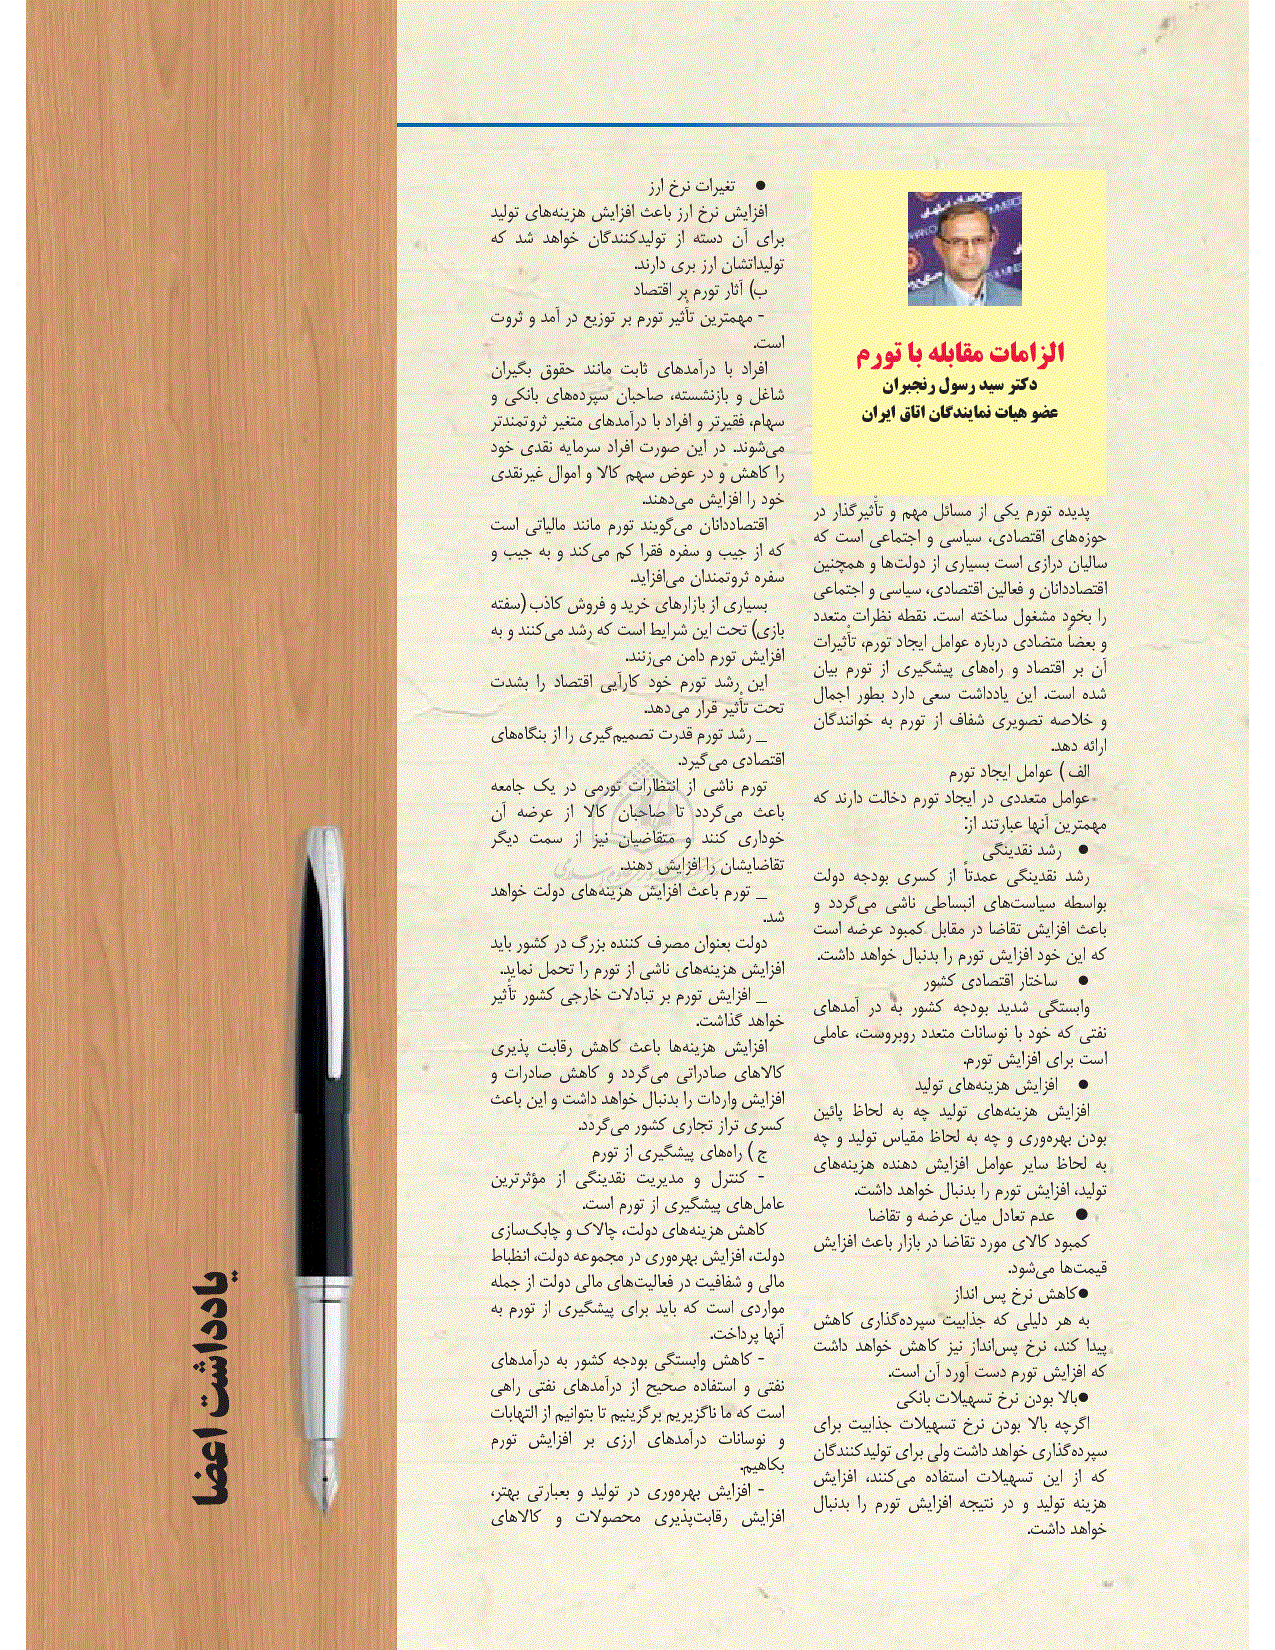 الزامات مقابله با تورم
دکتر سید رسول رنجبران
عضو هیات نمایندگان اتاق ایران
پدیده تورم یکی از مسائل مهم و تأثیرگذار در
حوزه‌های اقتصادی، سیاسی و اجتماعی است که
سالیان درازی است بسیاری از دولت‌ها و همچنین
اقتصاددانان و فعالین اقتصادی، سیاسی و اجتماعی
را بخود مشغول ساخته است. نقطه نظرات متعدد
و بعضاً متضادی درباره عوامل ایجاد تورم، تأثیرات
آن بر اقتصاد و راه‌های پیشگیری از تورم بیان
شده است. این یادداشت سعی دارد بطور اجمال
و خلاصه تصویری شفاف از تورم به خوانندگان
ارائه دهد.
الف ) عوامل ایجاد تورم
عوامل متعددی در ایجاد تورم دخالت دارند که
مهمترین آنها عبارتند از:
● رشد نقدینگی
رشد نقدینگی عمدتاً از کسری بودجه دولت
بواسطه سیاست‌های انبساطی ناشی می‌گردد و
باعث افزایش تقاضا در مقابل کمبود عرضه است
که این خود افزایش تورم را بدنبال خواهد داشت.
● ساختار اقتصادی کشور
وابستگی شدید بودجه کشور به در آمدهای
نفتی که خود با نوسانات متعدد روبروست، عاملی
است برای افزایش تورم.
● افزایش هزینه‌های تولید
افزایش هزینه‌های تولید چه به لحاظ پائین
بودن بهره‌وری و چه به لحاظ مقیاس تولید و چه
به لحاظ سایر عوامل افزایش دهنده هزینه‌های
تولید، افزایش تورم را بدنبال خواهد داشت.
● عدم تعادل میان عرضه و تقاضا
کمبود کالای مورد تقاضا در بازار باعث افزایش
قیمت‌ها می‌شود.
●کاهش نرخ پس انداز
به هر دلیلی که جذابیت سپرده‌گذاری کاهش
پیدا کند، نرخ پس‌انداز نیز کاهش خواهد داشت
که افزایش تورم دست آورد آن است.
●بالا بودن نرخ تسهیلات بانکی
اگرچه بالا بودن نرخ تسهیلات جذابیت برای
سپرده‌گذاری خواهد داشت ولی برای تولیدکنندگان
که از این تسهیلات استفاده می‌کنند، افزایش
هزینه تولید و در نتیجه افزایش تورم را بدنبال
خواهد داشت.
● تغیرات نرخ ارز
افزایش نرخ ارز باعث افزایش هزینه‌های تولید
برای آن دسته از تولیدکنندگان خواهد شد که
تولیداتشان ارز بری دارند.
ب) آثار تورم بر اقتصاد
- مهمترین تأثیر تورم بر توزیع در آمد و ثروت
است.
افراد با درآمدهای ثابت مانند حقوق بگیران
شاغل و بازنشسته، صاحبان سپرده‌های بانکی و
سهام، فقیرتر و افراد با درآمدهای متغیر ثروتمندتر
می‌شوند. در این صورت افراد سرمایه نقدی خود
را کاهش و در عوض سهم کالا و اموال غیرنقدی
خود را افزایش می‌دهند.
اقتصاددانان می‌گویند تورم مانند مالیاتی است
که از جیب و سفره فقرا کم می‌کند و به جیب و
سفره ثروتمندان می‌افزاید.
بسیاری از بازارهای خرید و فروش کاذب (سفته
بازی) تحت این شرایط است که رشد می‌کنند و به
افزایش تورم دامن می‌زنند.
این رشد تورم خود کارآیی اقتصاد را بشدت
تحت تأثیر قرار می‌دهد.
_ رشد تورم قدرت تصمیم‌گیری را از بنگاه‌های
اقتصادی می‌گیرد.
تورم ناشی از انتظارات تورمی در یک جامعه
باعث می‌گردد تا صاحبان کالا از عرضه آن
خوداری کنند و متقاضیان نیز از سمت دیگر
تقاضایشان را افزایش دهند.
_ تورم باعث افزایش هزینه‌های دولت خواهد
شد.
دولت بعنوان مصرف کننده بزرگ در کشور باید
افزایش هزینه‌های ناشی از تورم را تحمل نماید.
_ افزایش تورم بر تبادلات خارجی کشور تأثیر
خواهد گذاشت.
افزایش هزینه‌ها باعث کاهش رقابت پذیری
کالاهای صادراتی می‌گردد و کاهش صادرات و
افزایش واردات را بدنبال خواهد داشت و این باعث
کسری تراز تجاری کشور می‌گردد.
ج ) راه‌های پیشگیری از تورم
- کنترل و مدیریت نقدینگی از مؤثرترین
عامل‌های پیشگیری از تورم است.
کاهش هزینه‌های دولت، چالاک و چابک‌سازی
دولت، افزایش بهره‌وری در مجموعه دولت، انظباط
مالی و شفافیت در فعالیت‌های مالی دولت از جمله
مواردی است که باید برای پیشگیری از تورم به
آنها پرداخت.
- کاهش وابستگی بودجه کشور به درآمدهای
نفتی و استفاده صحیح از درآمدهای نفتی راهی
است که ما ناگزیریم برگزینیم تا بتوانیم از التهابات
و نوسانات درآمدهای ارزی بر افزایش تورم
بکاهیم.
- افزایش بهره‌وری در تولید و بعبارتی بهتر،
افزایش رقابت‌پذیری محصولات و کالاهای
یادداشت اعضا